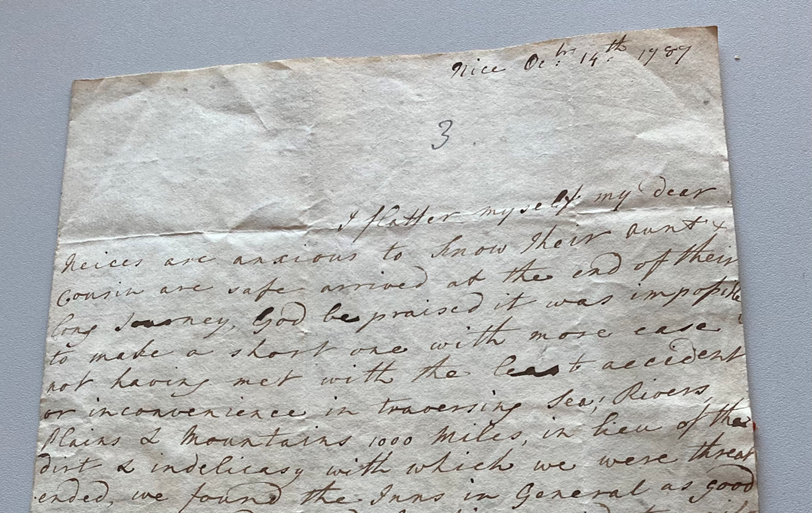 Nice Oc.brs 14.th 1789
3
I flatter myself my dear
Neices are anxious to know their aunt &
Cousin are safe arrived at the end of their
long Journey, God be praised it was impossible
to make a short one with more ease
not having met with the least accident
or inconvenience in traversing Sea, Rivers,
Plains & Mountains 1000 Miles, in lieu of the
dirt & indelicasy with which we were threat
ended, we found the Inns in General as good